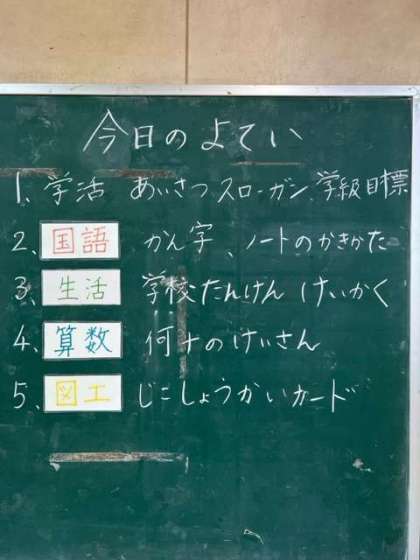 今日のよてい
1、学活 あいさつ スローガン 学級目標
2、国語 かん字、ノートのかきかた
3、生活 学校たんけん けいかく
4、算数 何十のけいさん
5、図工 じこしょうかいカード